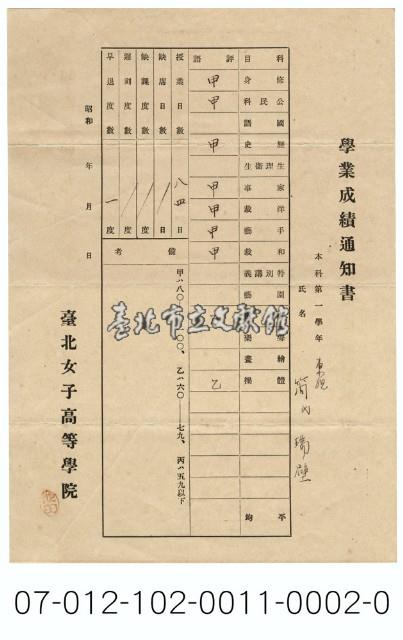 學業成績通知書
本科第一學年
氏名
科目
評語
修身
甲
公民科
甲
國語
歷史
甲
生理衛生
家事
甲
洋裁
甲
手藝
甲
和裁
甲
特別講義
園藝
繪畫
體操
乙
平均
授業日數
八四日
缺席日數
日
缺課度數
度
遲刻度數
度
早退度數
一度
備考
甲八〇——一〇〇、乙六〇——七九、丙五九以下
昭和 年 月 日
臺北女子高等學院
臺北市立文獻館
07-012-102-0011-0002-0